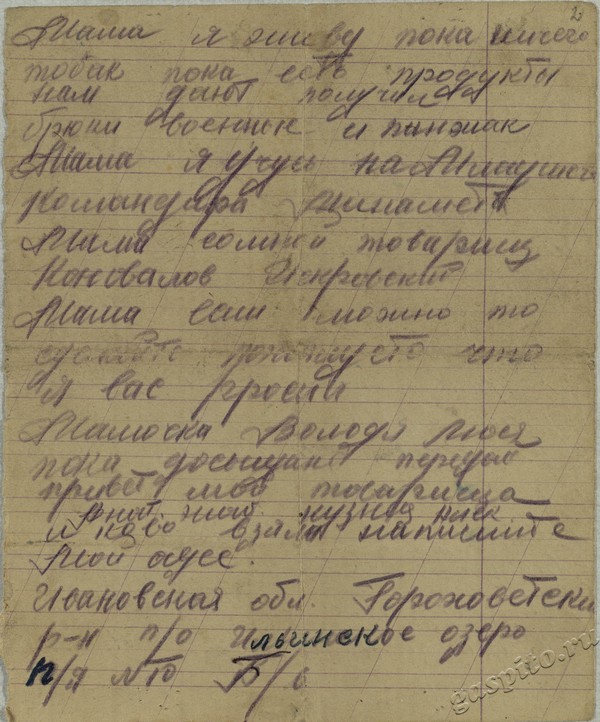 2
Мама я живу пока ничего
тобак пока есть продукты
нам дают получил
брюки военные и пинжак
Мама я учусь на Младшего
командира
Мама сомной товарищ
Коновалов Искровский
Мама если можно то
сделайте пожалуста что
я вас просил
Мамоска Володя Люся
пока досвидания передай
привет мов товарища
и ково взяли напишите
Мой адес.
Ивановская обл. Гороховетски
р-н п/о Ильинское озеро
п/я №10 Б/
gaspito.ru